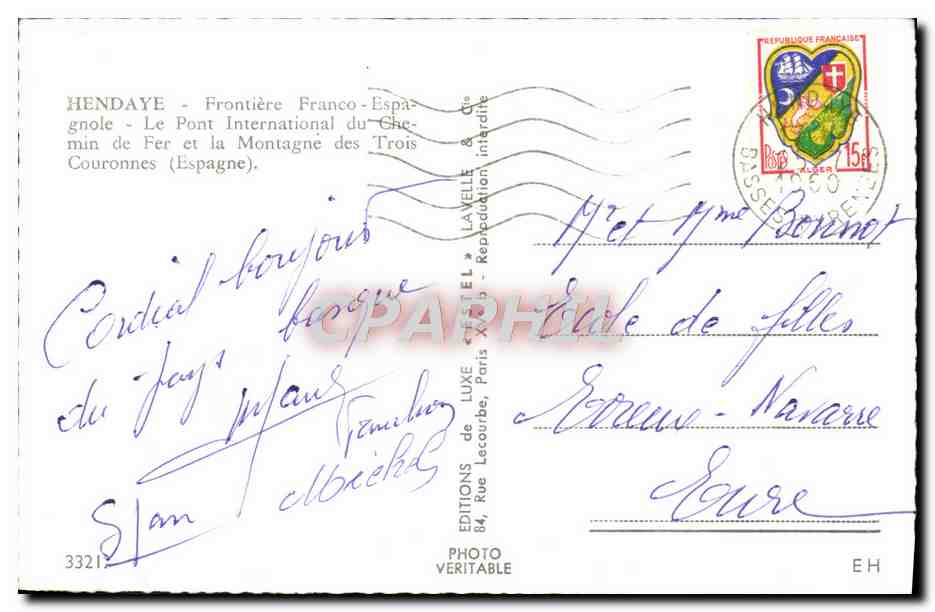 HENDAYE - Frontière Franco-Espa-
gnole - Le Pont International du Che-
min de Fer et la Montagne des Trois
Couronnes (Espagne).
Cordial bonjour
du Pays basque
Stan
Michel
33217
EDITIONS de LUXE « ESTEL » LAVELLE & Cie
84, Rue Lecourbe, Paris XV - Reproduction interdite
PHOTO
VERITABLE
CPAPHIL
REPUBLIQUE FRANÇAISE
POSTES
ALGER
15F
1960
BASSES PYRENEES
Mr et Mme Bonnot
Ecole de filles
Evreux - Navarre
Eure
EH